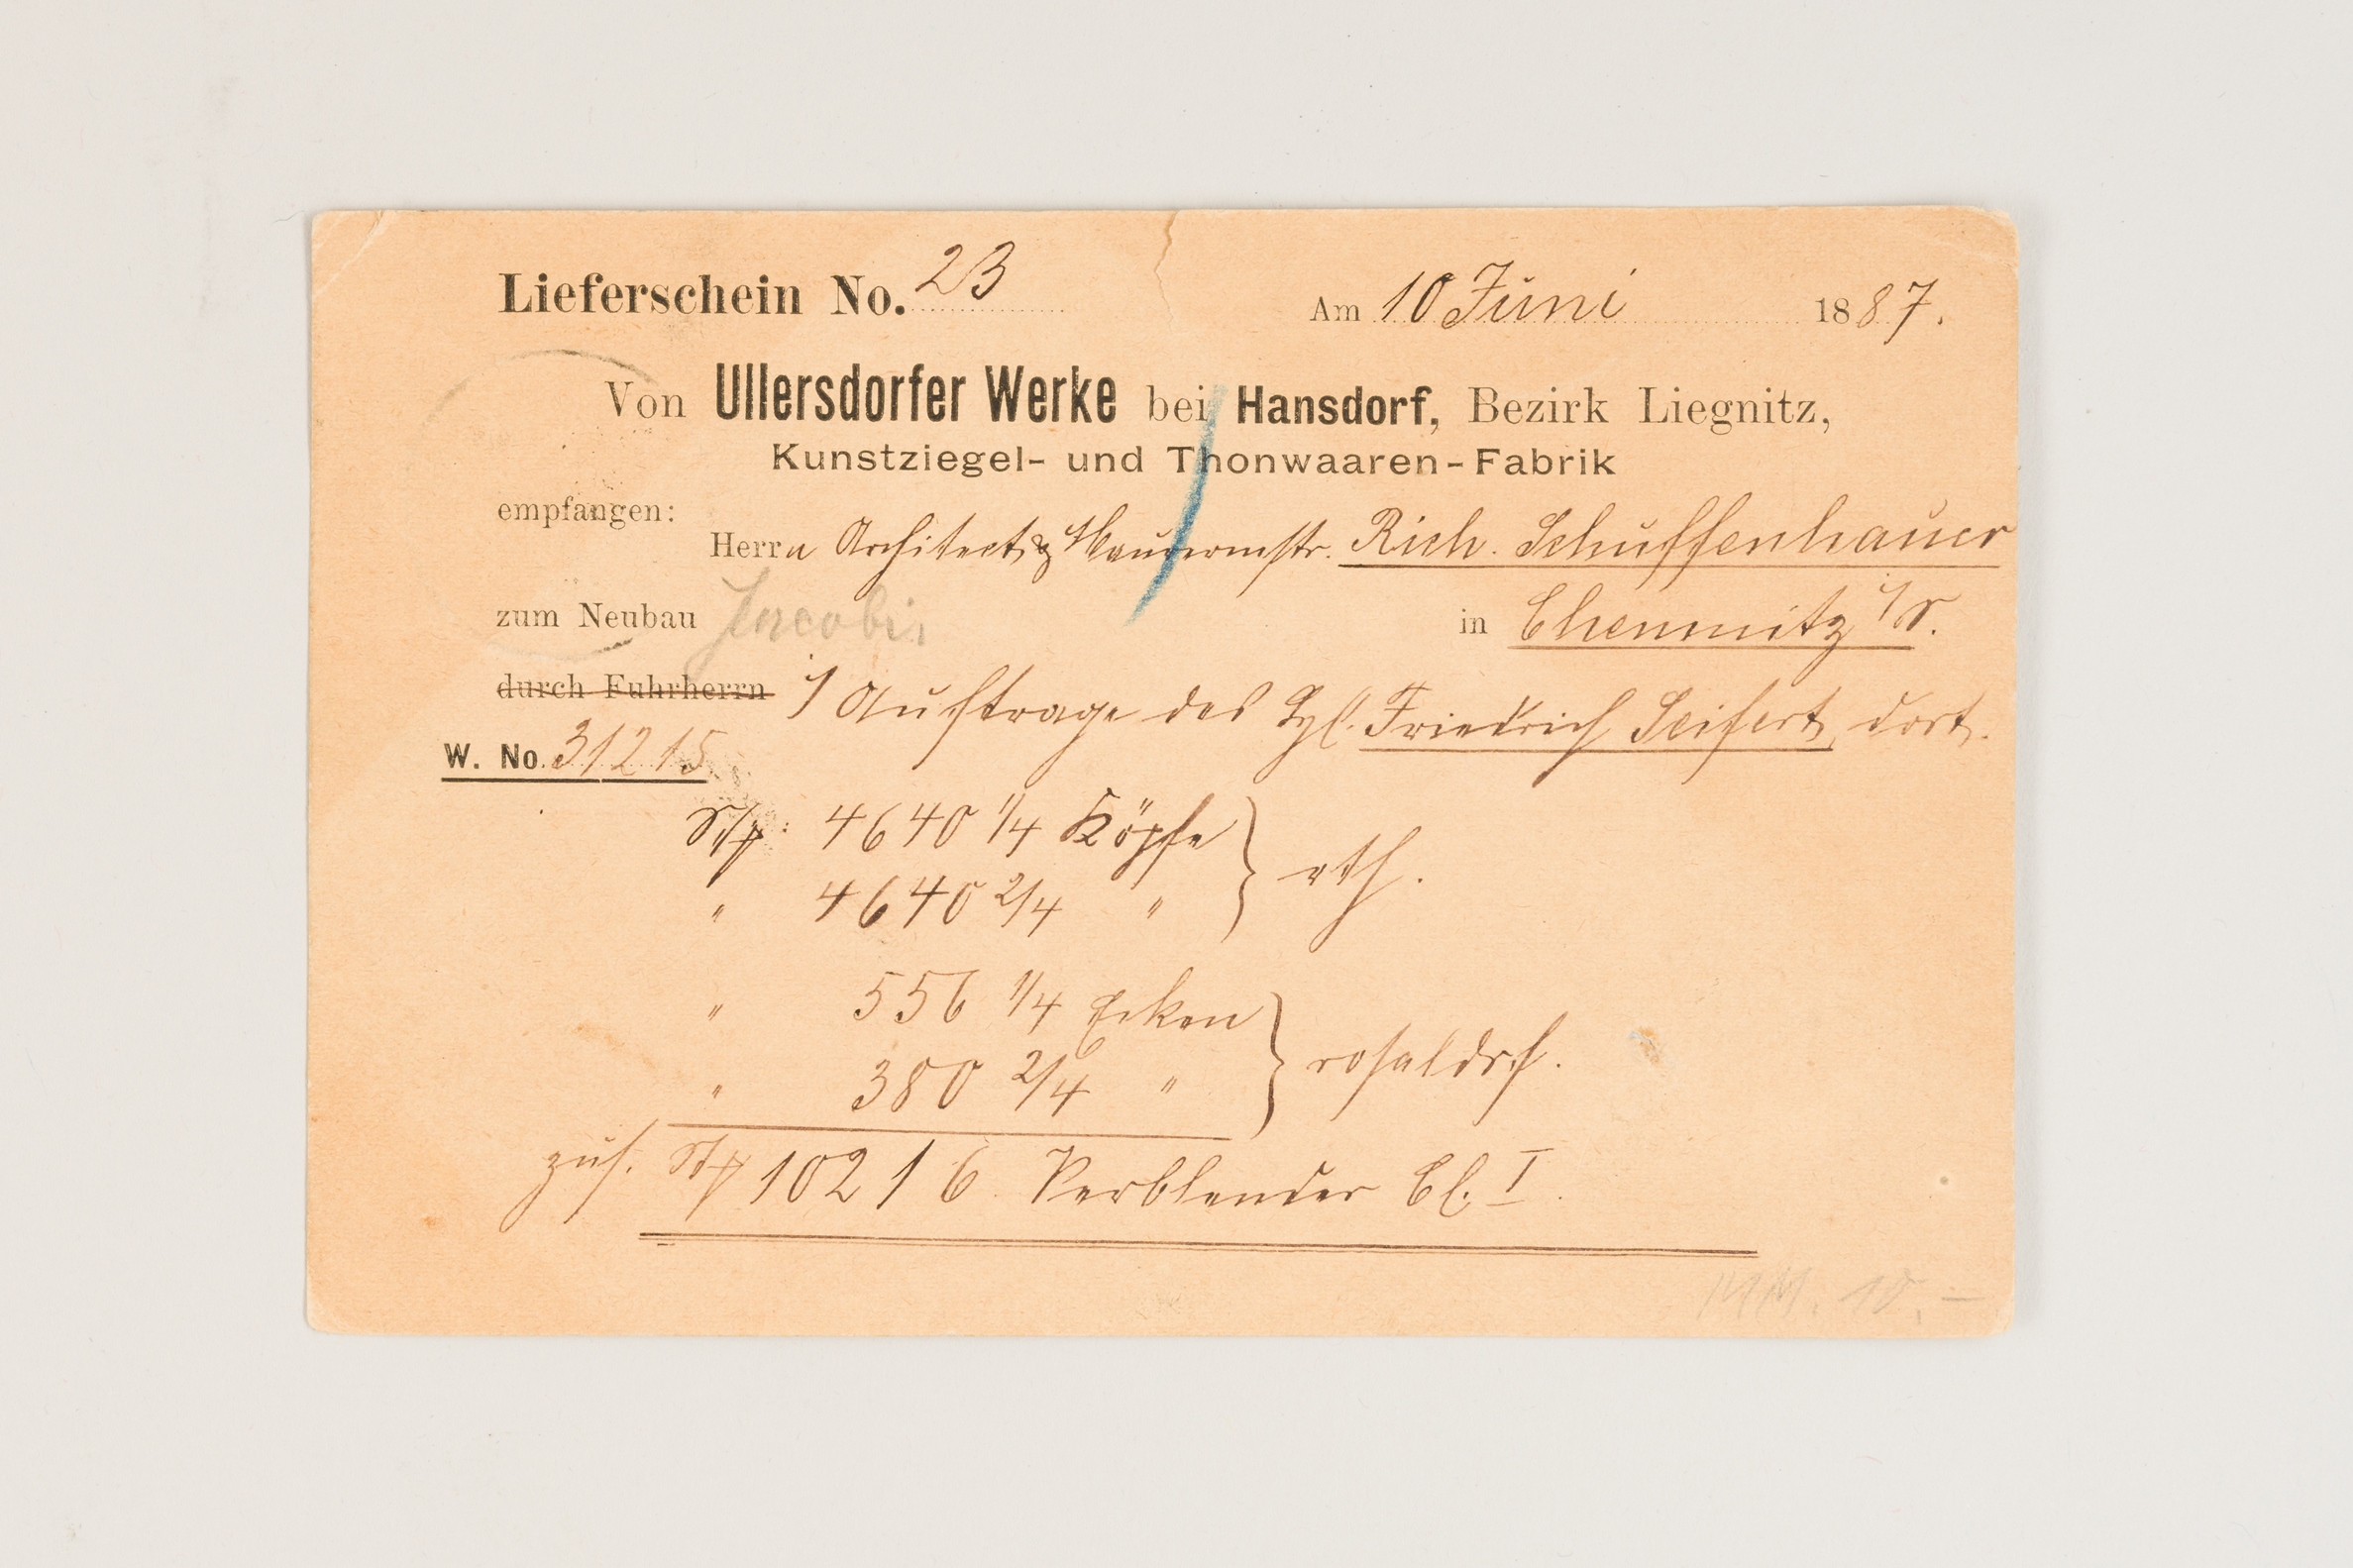 Lieferschein No. 23
Am 10 Juni 1887.
Von Ullersdorfer Werke bei Hansdorf, Bezirk Liegnitz,
Kunstziegel- und Thonwaaren-Fabrik
empfangen:
Herrn Architect & Maurermstr. Rich. Schuffenhauer
zum Neubau Jacobi. in Chemnitz i/S.
durch Fuhrherrn i/ Auftrage des Friedrich Seifert, dort.
W. No. 31215
4640 1/4 Köpfe
" 4640 2/4 " rth.
" 556 1/4 Ecken
" 380 2/4 "
zus. 10216 Verblender Cl. I.